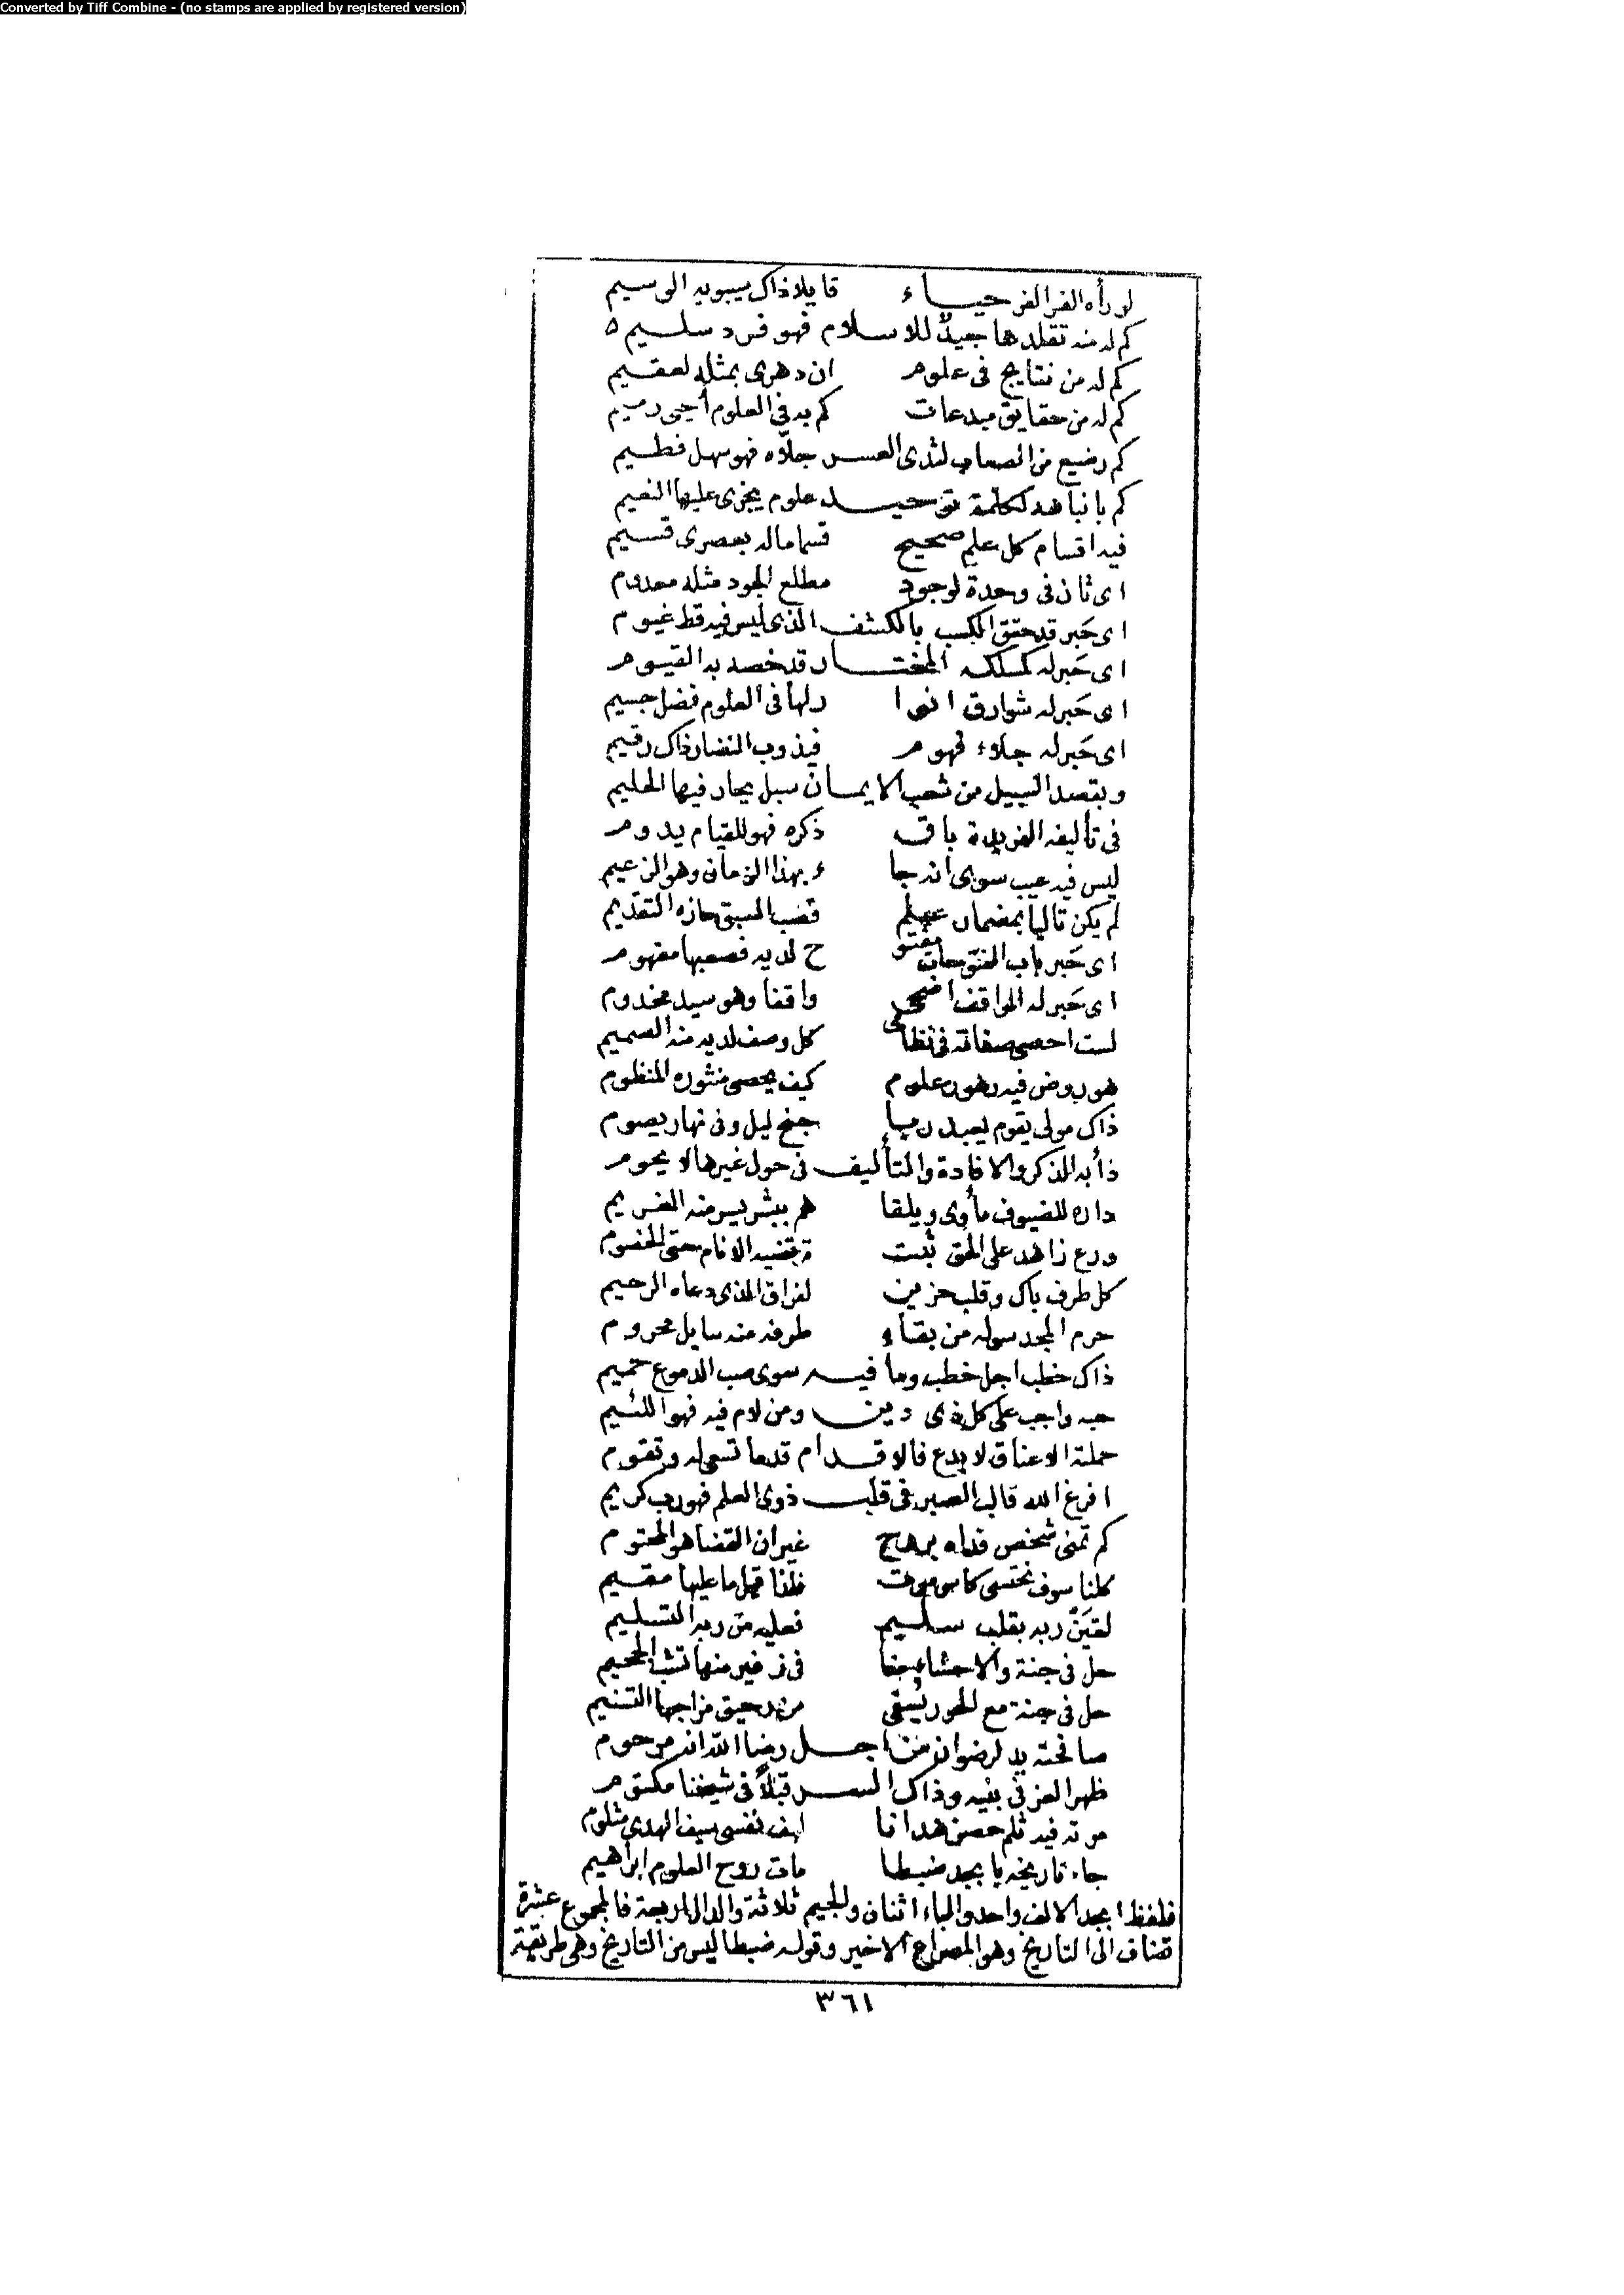 Converted by Tiff Combine - (no stamps are applied by registered version)
لو رأه الفرالفر حياء قايلا ذاك سيبويه الوسيم
كم له منه تقلدها جيد للاسلام فهو فرد سليم
كم له من نتايج فى علوم ان دهرى بمثله لعقيم
كم له من حقايق مبدعات كم به فى العلوم أحيى رميم
كم رضيع من الصعاب لثدى العسر جلاه فهو سهل فطيم
كم بانباهه لكلمة توحيد علوم يجزى عليها النعيم
فيه اقسام كل علم صحيح قسما ماله بعصرى قسيم
اى ثان فى وحدة لوجود مطلع الجود مثله معدوم
اى حَبر قد حقق الكسب بالكشف الذى ليس فيه قط غيوم
اى حَبر له كمسلكه المختار قد خصه به القيوم
اى حَبر له شوارق انوا رلها فى العلوم فضل جسيم
اى حَبر له جلاء فهوم فيذوب النضار ذاك رقيم
وبقصد السبيل من شعب الايمان سبل يحار فيها الحليم
فى تأليفه الفريدة باق ذكره فهو للقيام يدوم
ليس فيه عيب سوى انه جا ء بهذا الزمان وهو الزعيم
لم يكن تاليا بمضمار علم قصب السبق حازه التقديم
اى حَبر باب الفتوحات مفتو ح لديه فصعبها مفهوم
اى حَبر له المواقف اضحى واقفا وهو سيد مخدوم
لست احصى صفاته فى نظامى كل وصف لديه منه الصميم
هو روض فيه زهور علوم كيف يحصى منثوره المنظوم
ذاك مولى يقوم يعبد ربا جنح ليل وفى نهار يصوم
دأبه الذكر والافادة والتأليف فى حول غيرها لا يحوم
داره للضيوف مأوى ويلقا هم ببشر يسر منه الغريم
ورع زاهد على الحق ثبت ة الانام حتى الخصوم
كل طرف باك وقلب حزين لفراق الذى دعاه الرحيم
حرم المجد سوله من بقاء طرفه منه سايل محروم
ذاك خطب اجل خطب وما فيه سوى صب الدموع حميم
حبه واجب على كل ذى دين ومن لام فيه فهو اللئيم
حملته الاعناق لا بدع فالاقدام قدما تسعى له وتقوم
افرغ الله قالب الصبر فى قلب ذوى العلم فهو رب كريم
كم تمنى شخص فداه بروح غير ان القضا هو المحتوم
كلنا سوف نحتسى كاس موت فلذا قيل ما عليها مقيم
لقيَنْ ربه بقلب سليم فعليه من ربه التسليم
حل فى جنة والاحشاء منا فى زفير منها تشب الجحيم
حل فى جنة مع الحور يُسقى من رحيق مزاجها التسنيم
صافحته يد لرضوان من اجل رضا الله انه مرحوم
ظهر العز فى بنيه وذاك السر قبلاً فى شيخنا مكتوم
موته فيه ثلم حصن هدانا لهف نفسى سيف الهدى مثلوم
جاء تاريخه بابجد ضبطا مات روح العلوم ابراهيم
فلفظ ابجد الالف واحد والباء اثنان والجيم ثلاثة والدال اربعة فالمجموع عشرة
تضاف الى التاريخ وهو المصراع الاخير وقوله ضبطا ليس من التاريخ وهى طريقة
٣٦١